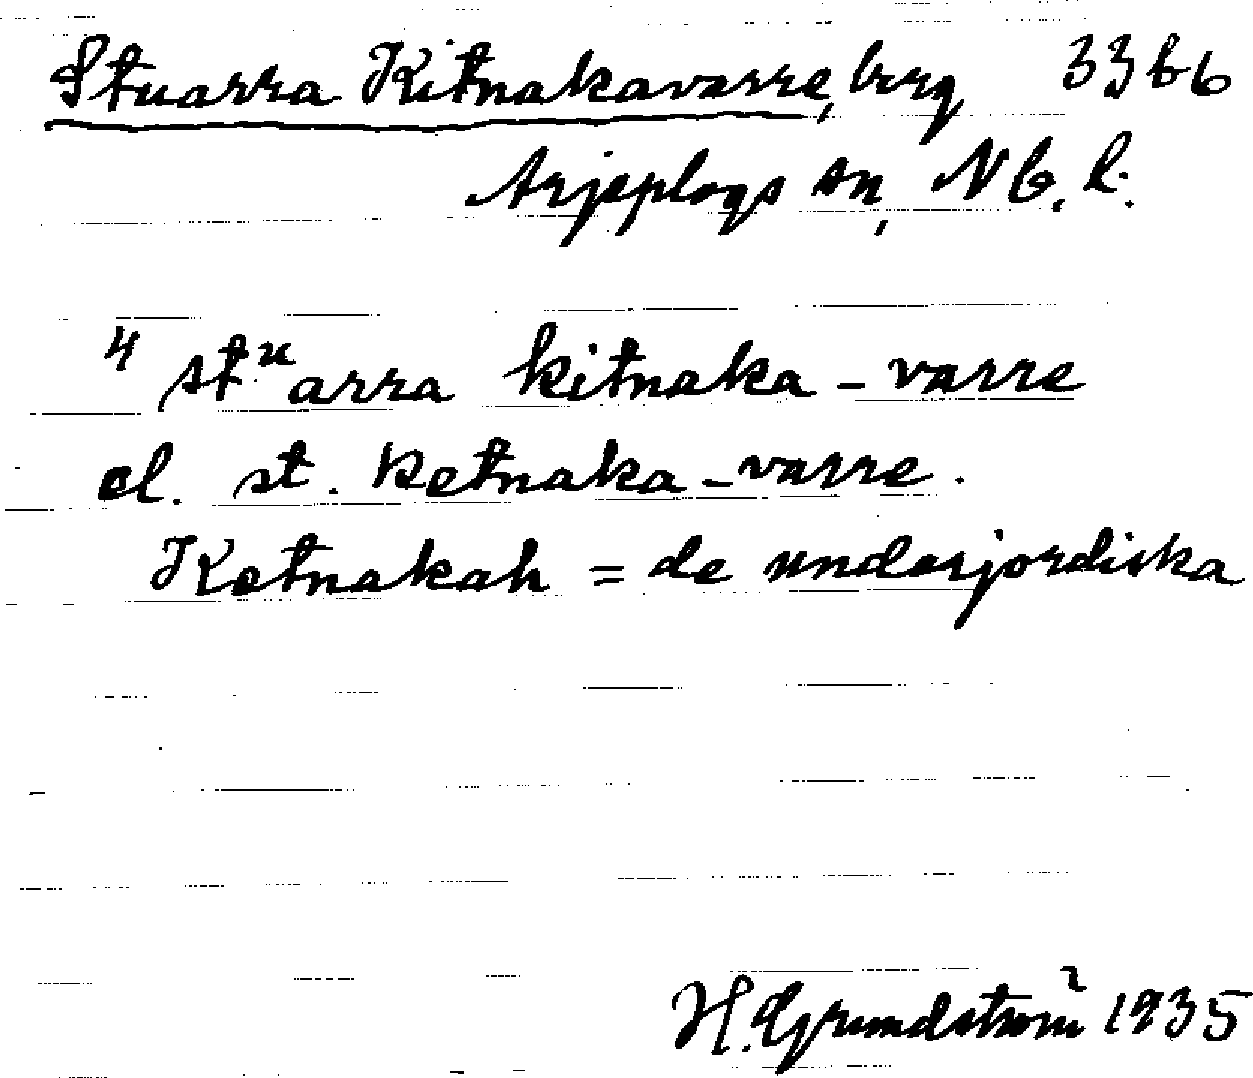 Stuorra Kitnakavarre, berg 33 b b
Arjeplogs sn, Nb. l.
4 stuarra kitnaka - varre
el. st. ketnaka - varre.
Ketnakah = de underjordiska
H. Grundström 1935